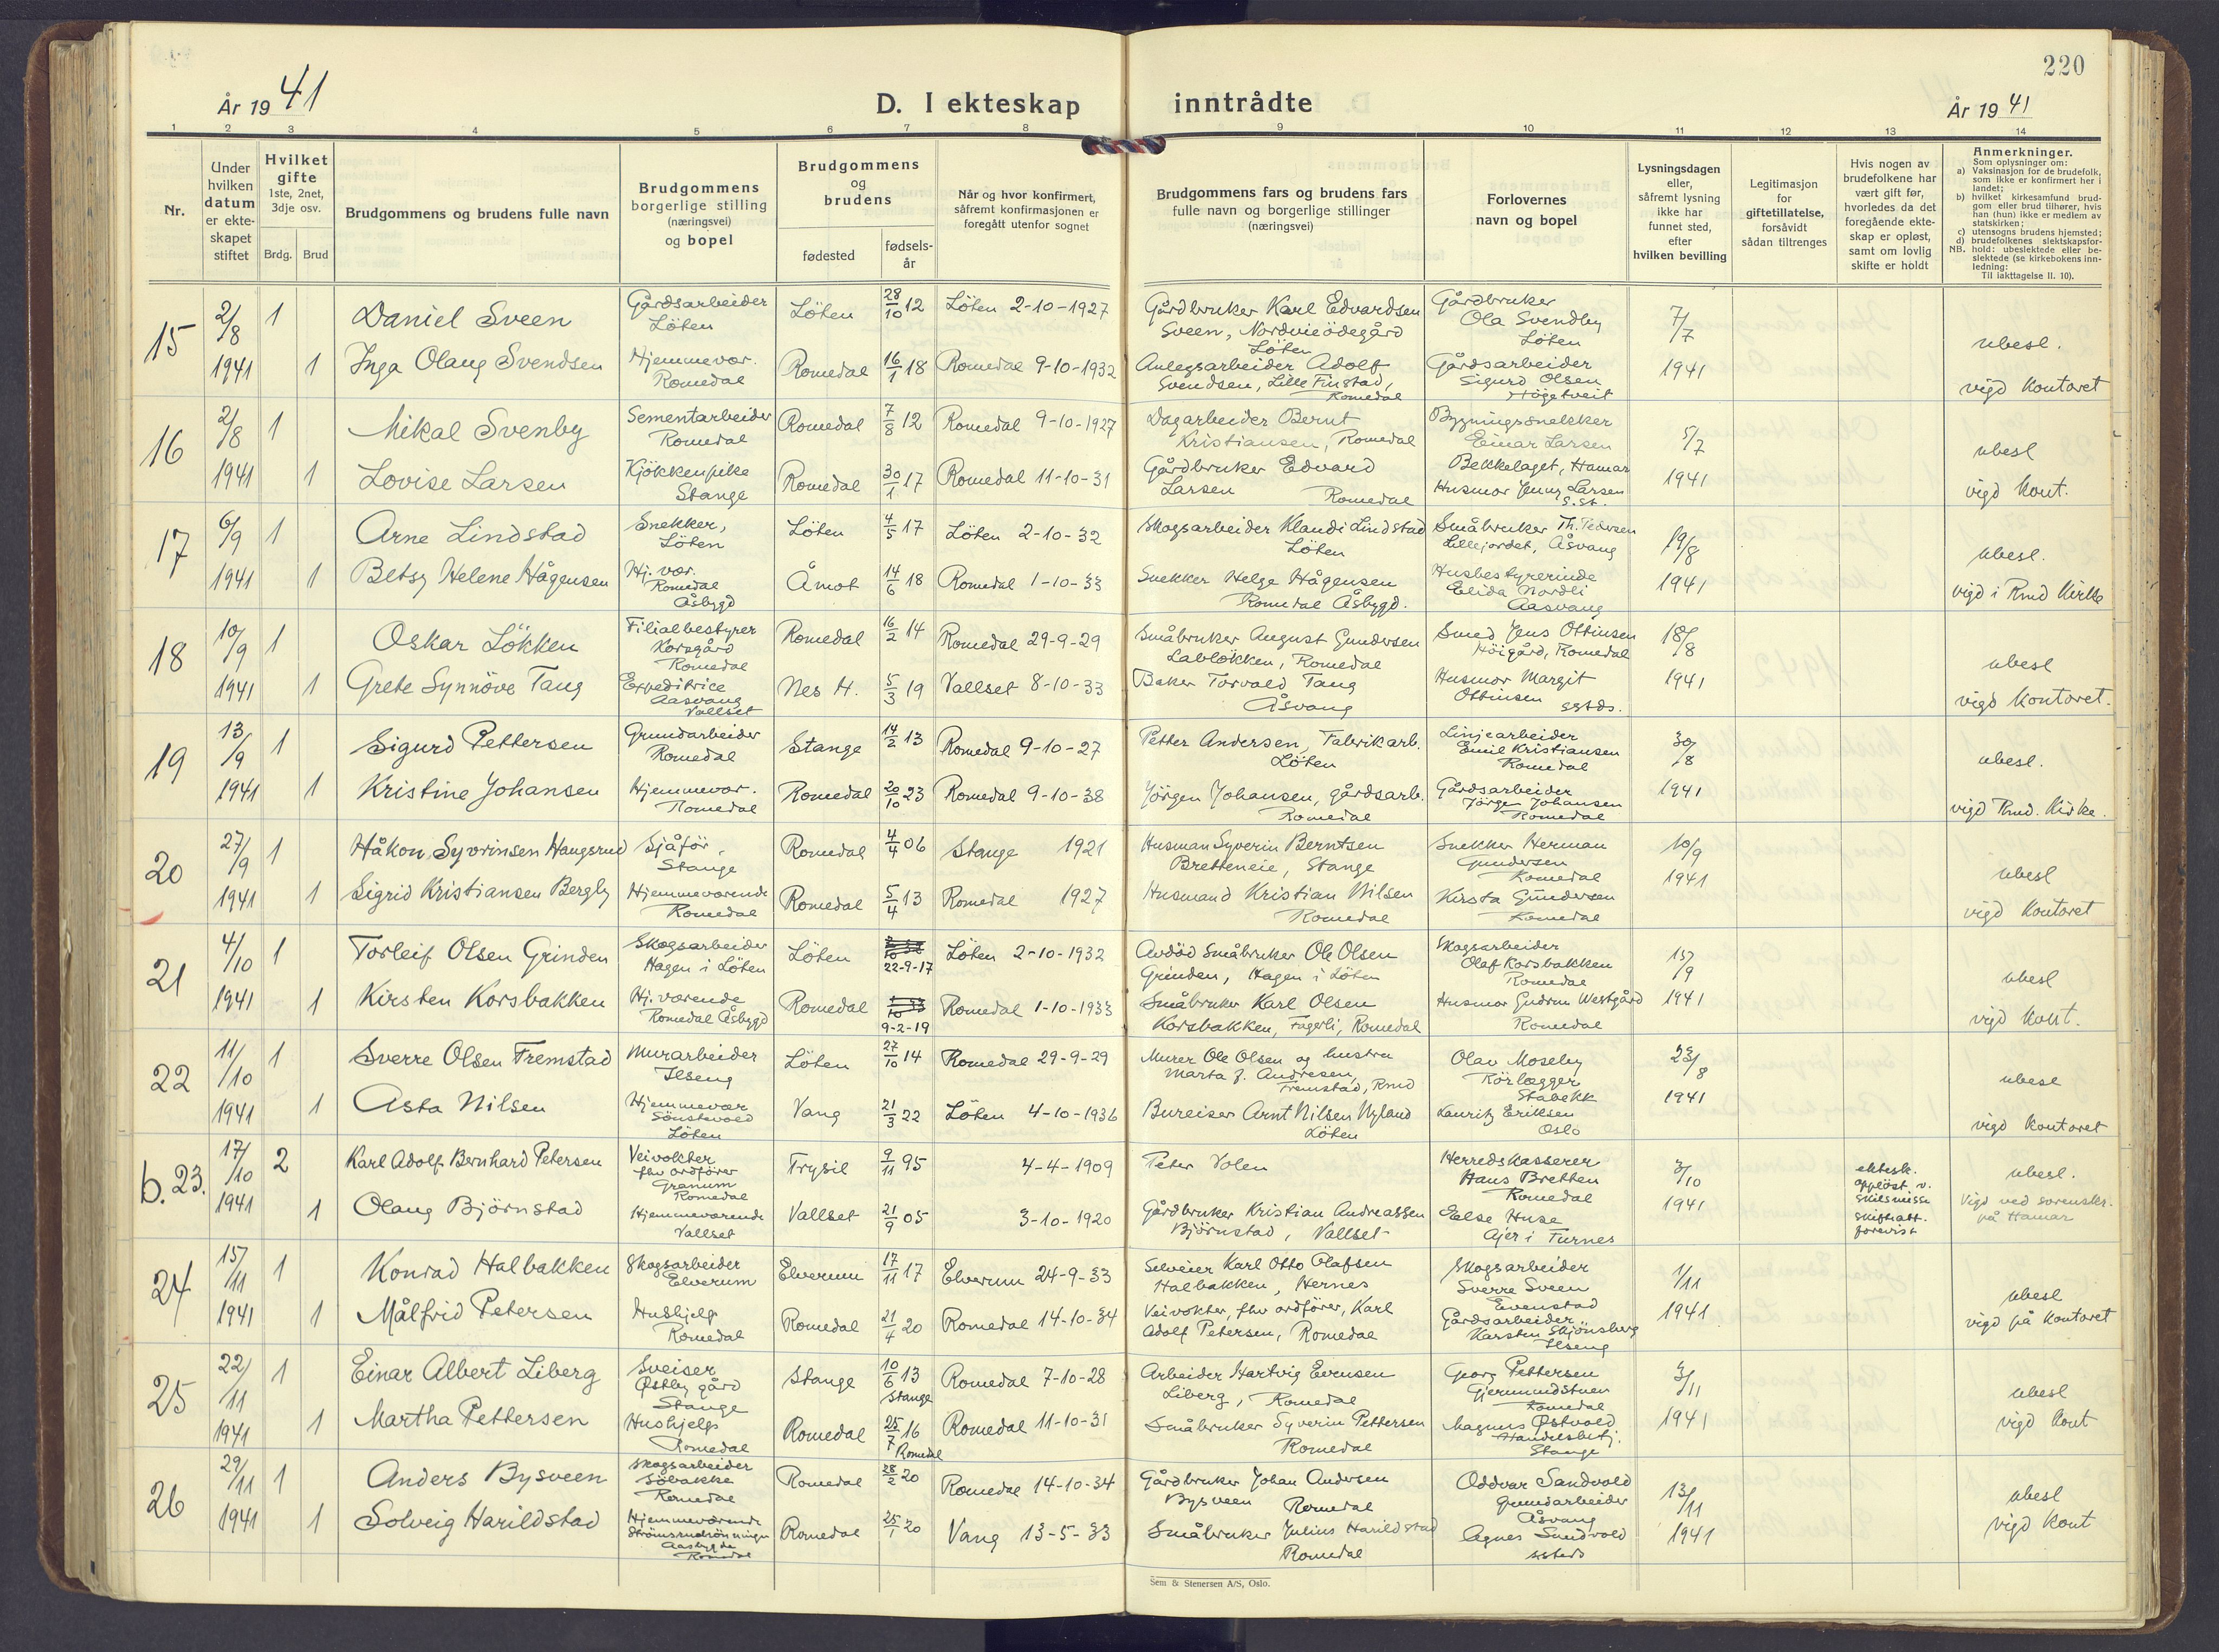 220
År 19 41
D. I ekteskap inntrådte
År 19 41
1 2 3 4 5 6 7 8 9 10 11 12 13 14
Nr.
Under
hvilken
datum
er ekte-
skapet
stiftet
Hvilket
gifte
1ste, 2net,
3dje osv.
Brdg. Brud
Brudgommens og brudens fulle navn
Brudgommens
borgerlige stilling
(næringsvei)
og bopel
Brudgommens
og
brudens
fødested
fødsels-
år
Når og hvor konfirmert,
såfremt konfirmasjonen er
foregått utenfor sognet
Brudgommens fars og brudens fars
fulle navn og borgerlige stillinger
(næringsvei)
Forlovernes
navn og bopel
Lysningsdagen
eller,
såfremt lysning
ikke har
funnet sted,
efter
hvilken bevilling
Legitimasjon
for
giftetillatelse,
forsåvidt
sådan tiltrenges
Hvis nogen av
brudefolkene har
vært gift før,
hvorledes da det
foregående ekte-
skap er opløst,
samt om lovlig
skifte er holdt
Anmerkninger.
Som oplysninger om:
a) Vaksinasjon for de brudefolk,
som ikke er konfirmert her i
landet;
b) hvilket kirkesamfund brud-
gom eller brud tilhører, hvis
han (hun) ikke er medlem av
statskirken;
c) utensogns brudens hjemsted;
d) brudefolkenes slektskapsfor-
NB. hold: ubeslektede eller be-
slektede (se kirkebokens inn-
ledning:
Til iakttagelse II. 10).
15
2/8
1941
1
Daniel Sveen
Gårdsarbeider
Löten
Löten
28/10 12
Löten 2-10-1927
Gårdbruker Karl Edvardsen
Sveen, Nordvieödegård
Löten
Gårdbruker
Ola Svendby
Löten
7/7
1941
ubesl.
1
Inga Olaug Svendsen
Hjemmevær.
Romedal
Romedal
16/1 18
Romedal 9-10-1932
Anlegsarbeider Adolf
Svendsen, Lille Finstad,
Romedal
Gårdsarbeider
Sigurd Olsen
Högetveit
vigd kontoret
16
2/8
1941
1
Mikal Svenby
Sementarbeider
Romedal
Romedal
7/8 12
Romedal 9-10-1927
Dagarbeider Bernt
Kristiansen, Romedal
Bygningssnekker
Einar Larsen
Bekkelaget, Hamar
5/7
1941
ubesl
1
Lovise Larsen
Kjökkenpike
Stange
Romedal
30/1 17
Romedal 11-10-31
Gårdbruker Edvard
Larsen Romedal
Husmor Jenny Larsen
s.st.
vigd kont.
17
6/9
1941
1
Arne Lindstad
Snekker,
Löten
Löten
4/5 17
Löten 2-10-32
Skogsarbeider Klaudi Lindstad
Löten
Småbruker Th. Pedersen
Lillejordet, Åsvang
19/8
1941
ubesl.
1
Betsy Helene Hågensen
Hj. vær.
Romedal
Åsbygd
Åmot
14/6 18
Romedal 1-10-33
Snekker Helge Hågensen
Romedal Åsbygd.
Husbestyrerinde
Elida Nordli
Aasvang
vigd i Rmd Kirke
18
10/9
1941
1
Oskar Lökken
Filialbestyrer
Korsgård
Romedal
Romedal
16/2 14
Romedal 29-9-29
Småbruker August Gundersen
Lablökken, Romedal
Smed Jens Ottinsen
Höigård, Romedal
18/8
1941
ubesl
1
Grete Synnöve Tang
Expeditrice
Aasvang
Vallset
Nes H.
5/3 19
Vallset 8-10-33
Baker Torvald Tang
Åsvang
Husmor Margit
Ottinsen sstds.
vigd kontoret.
19
13/9
1941
1
Sigurd Pettersen
Grundarbeider
Romedal
Stange
14/2 13
Romedal 9-10-27
Petter Andersen, Fabrikarb.
Löten
Linjearbeider
Emil Kristiansen
Romedal
30/8
1941
ubesl.
1
Kristine Johansen
Hjemmevær.
Romedal
Romedal
20/10 23
Romedal 9-10-38
Jörgen Johansen, gårdsarb.
Romedal
Gårdsarbeider
Jörgen Johansen
Romedal
vigd Rmd. Kirke.
20
27/9
1941
1
Håkon Syvrinsen Haugsrud
Sjåför,
Stange
Romedal
4/4 06
Stange 1921
Husman Syverin Berntsen
Bretteneie, Stange
Snekker Herman
Gundersen
Romedal
10/9
1941
ubesl
1
Sigrid Kristiansen Bergby
Hjemmeværende
Romedal
Romedal
5/4 13
Romedal 1927
Husmand Kristian Nilsen
Romedal
Kirsta Gundersen
Romedal
vigd kontoret
21
4/10
1941
1
Torleif Olsen Grinden
Skogsarbeider
Hagen i Löten
Löten
22-9-17
Löten 2-10-1932
Avdöd Småbruker Ole Olsen
Grinden, Hagen i Löten
Skogsarbeider
Olaf Korsbakken
Romedal
15/9
1941
ubesl
1
Kirsten Korsbakken
Hj. værende
Romedal Åsbygd
Romedal
9-2-19
Romedal 1-10-1933
Småbruker Karl Olsen
Korsbakken, Fagerli, Romedal
Husmor Gudrun Westgård
Romedal
vigd kont.
22
11/10
1941
1
Sverre Olsen Fremstad
Murarbeider
Ilseng
Löten
27/10 14
Romedal 29-9-29
Murer Ole Olsen og hustru
Marta J. Andresen,
Fremstad, Rmd
Olav Moseby
Rörlægger
Stabekk
23/8
1941
ubesl
1
Asta Nilsen
Hjemmevær
Sönstevold
Löten
Vang
21/3 22
Löten 4-10-1936
Bureiser Arnt Nilsen Nyland
Löten
Lauritz Eriksen
Oslo
vigd kontoret
b. 23.
17/10
1941
2
Karl Adolf Bernhard Petersen
Veivokter
fhv ordförer
Granum
Romedal
Trysil
9/11 95
4-4-1909
Peter Volen
Herredskasserer
Hans Bretten
Romedal
3/10
1941
ektesk.
opplöst v.
skilsmisse
skifteatt.
forevist
ubesl.
1
Olaug Björnstad
Hjemmeværende
Vallset
Vallset
21/9 05
3-10-1920
Gårdbruker Kristian Andreassen
Björnstad, Vallset
Else Huse
Ajer i Furnes
Vigd ved sorenskr.
på Hamar
24
15/11
1941
1
Konrad Halbakken
Skogsarbeider
Elverum
Elverum
17/11 17
Elverum 24-9-33
Selveier Karl Otto Olafsen
Halbakken, Hernes
Skogsarbeider
Sverre Sveen
Evenstad
1/11
1941
ubesl
1
Målfrid Petersen
Hushjelp
Romedal
Romedal
21/4 20
Romedal 14-10-34
Veivokter, fhv ordförer, Karl
Adolf Petersen, Romedal
Gårdsarbeider
Karsten Skjönsberg
Ilseng
vigd på kontoret
25
22/11
1941
1
Einar Albert Liberg
Sveiser
Østby gård
Stange
Stange
10/6 13
Stange
Romedal 7-10-28
Arbeider Hartvig Evensen
Liberg, Romedal
Georg Pettersen
Gjermundstuen
Romedal
3/11
1941
ubesl
1
Martha Pettersen
Hushjelp
Romedal
Romedal
25/7 16
Romedal
Romedal 11-10-31
Småbruker Syverin Pettersen
Romedal
Magnus Østvold
Handelsbetj.
Stange
vigd kont
26
29/11
1941
1
Anders Bysveen
Skogsarbeider
Söbakke
Romedal
Romedal
28/2 20
Romedal 14-10-34
Gårdbruker Johan Andersen
Bysveen Romedal
Oddvar Sandvold
Grundarbeider
Åsvang
13/11
1941
ubesl
1
Solveig Harildstad
Hjemmeværende
Aasbygda
Romedal
Romedal
25/1 20
Vang 13-5-33
Småbruker Julius Harildstad
Romedal
Agnes Sandvold
ssteds
vigd kont
Sem & Stenersen A/S, Oslo.